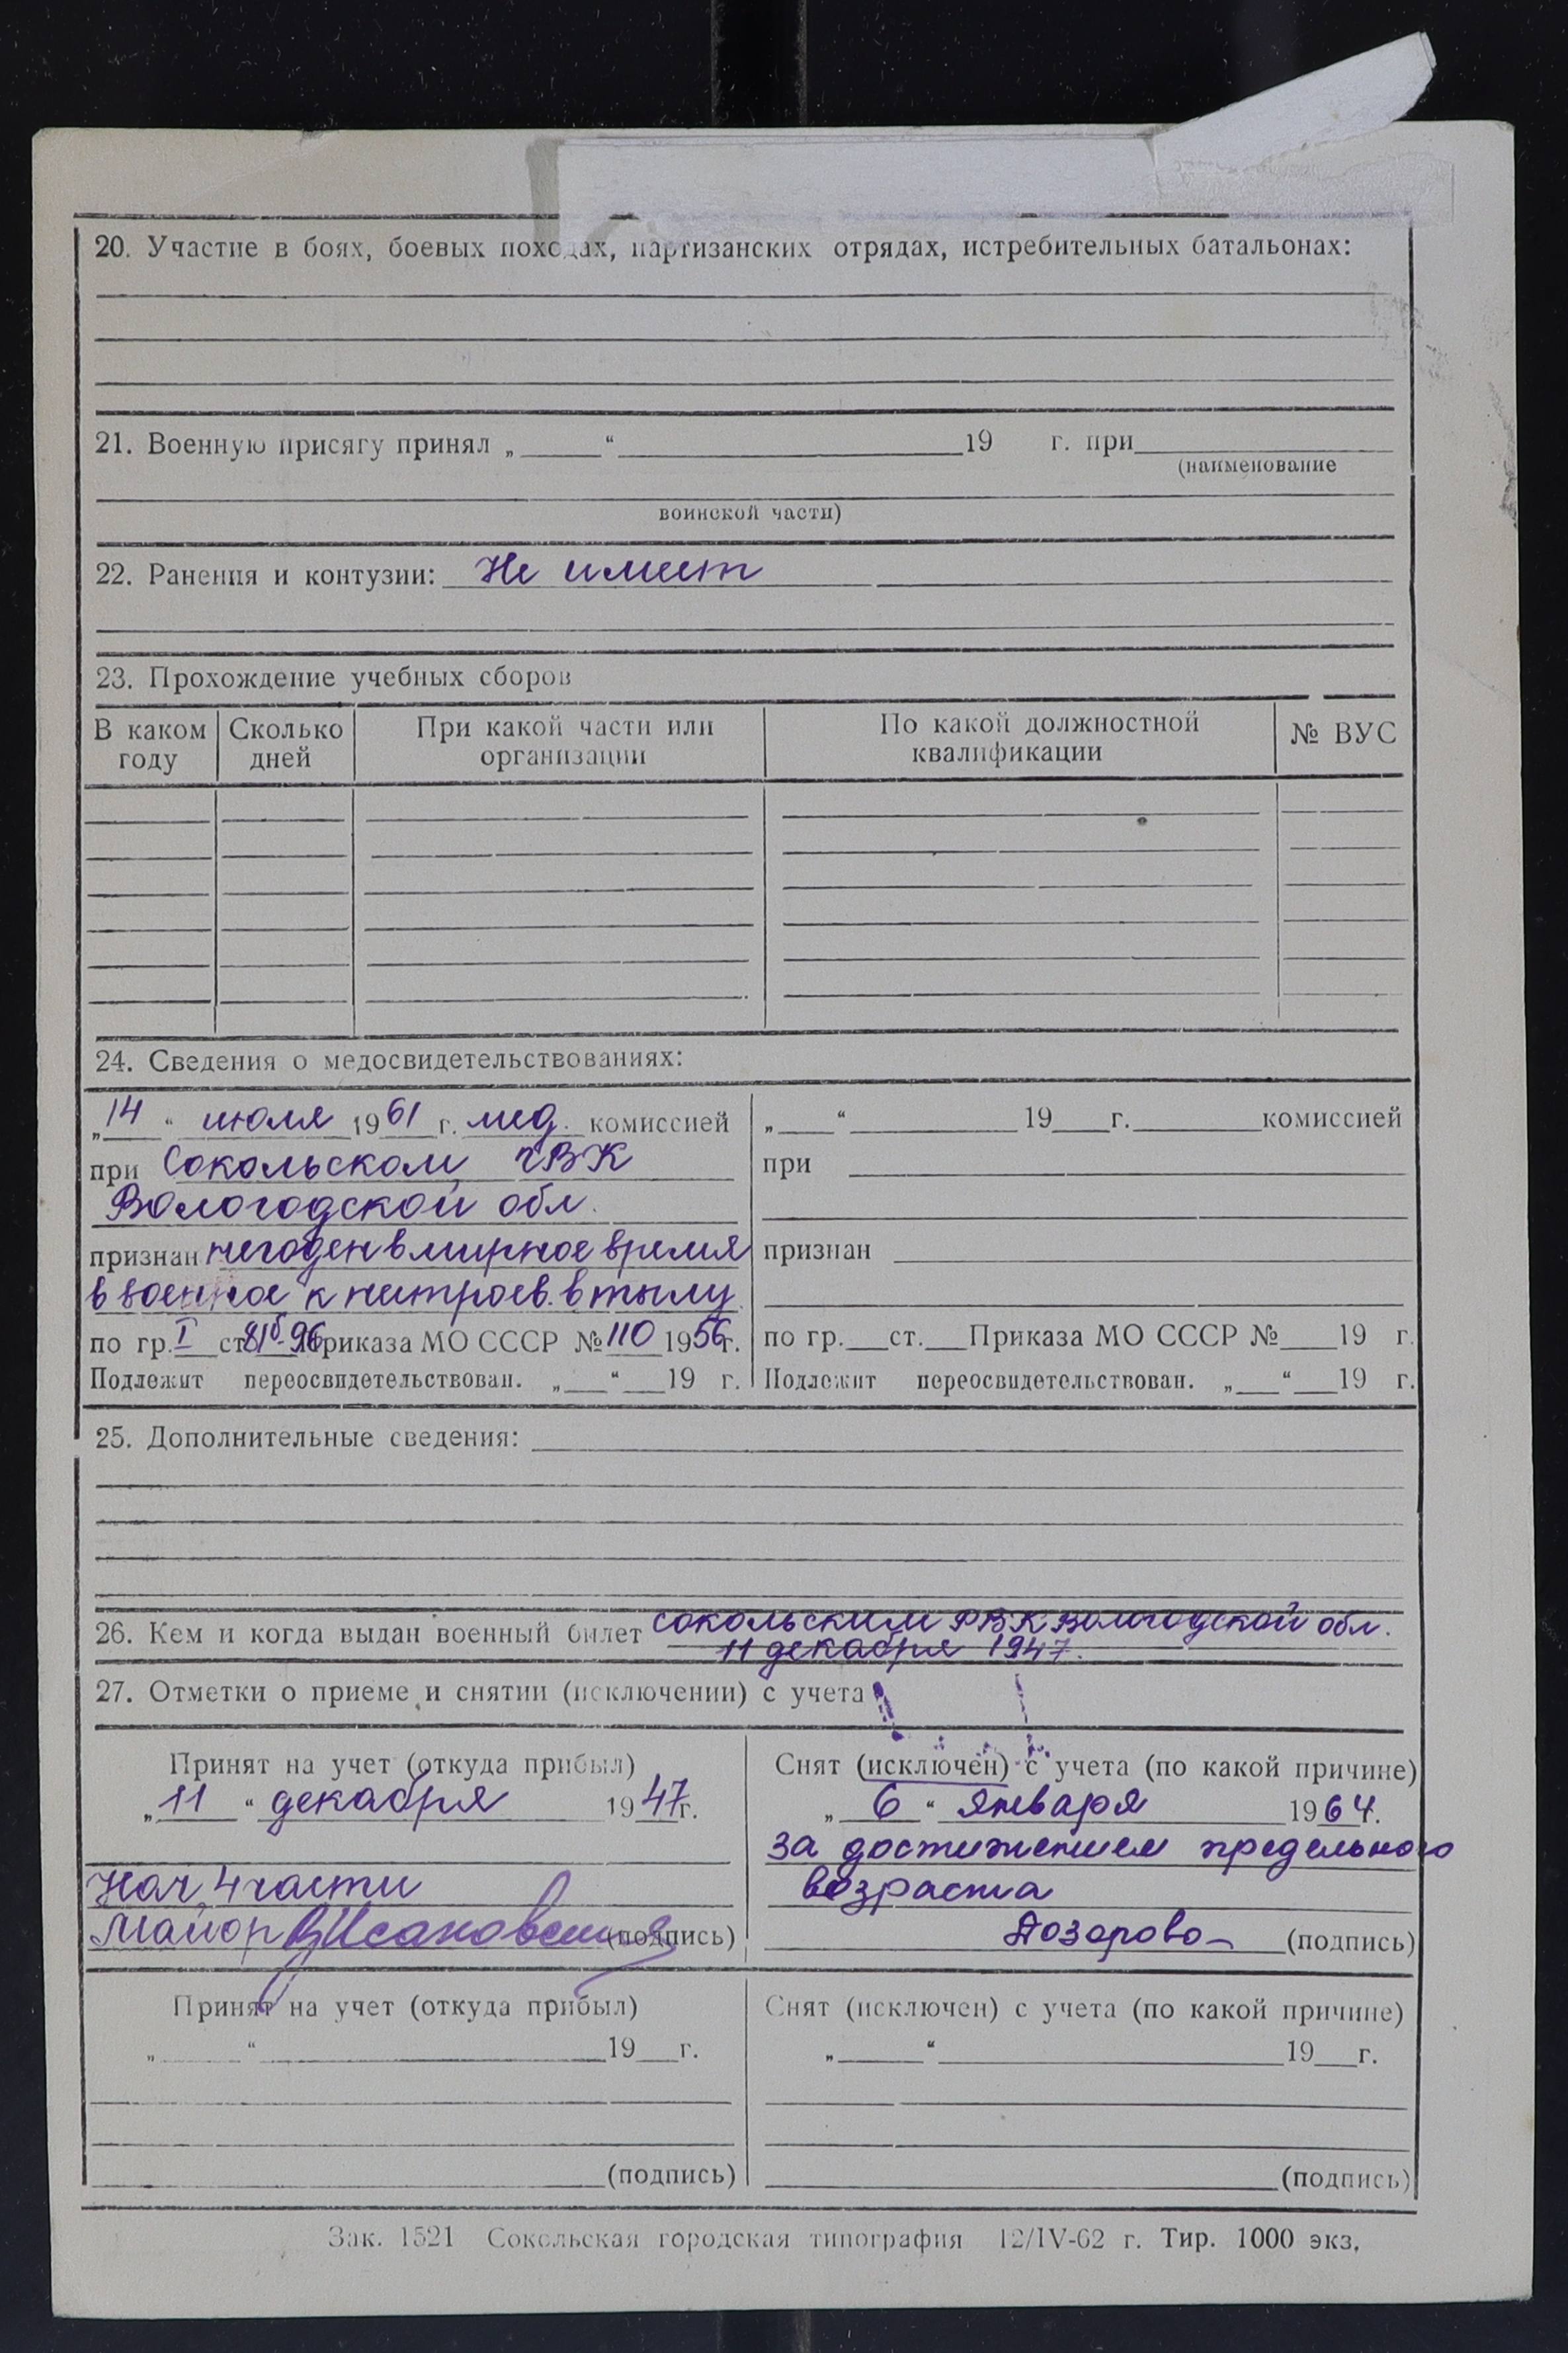 20. Участие в боях, боевых походах, партизанских отрядах, истребительных батальонах:
21. Военную присягу принял „ “ 19 г. при
(наименование
воинской части)
22. Ранения и контузии: Не имеет
23. Прохождение учебных сборов
В каком году | Сколько дней | При какой части или организации | По какой должностной квалификации | № ВУС
24. Сведения о медосвидетельствованиях:
„14“ июля 1961 г. мед. комиссией
при Сокольском ГВК
Вологодской обл.
признан негоден в мирное время
в военное к нестроев. в тылу
по гр. I ст. 81б-96 Приказа МО СССР № 110 1956 г.
Подлежит переосвидетельствован. „ “ 19 г.
„ “ 19 г. комиссией
при
признан
по гр. ст. Приказа МО СССР № 19 г.
Подлежит переосвидетельствован. „ “ 19 г.
25. Дополнительные сведения:
26. Кем и когда выдан военный билет Сокольским РВК Вологодской обл.
11 декабря 1947.
27. Отметки о приеме и снятии (исключении) с учета
Принят на учет (откуда прибыл)
„11“ декабря 1947 г.
Нач. 4 части
Майор (подпись)
Снят (исключен) с учета (по какой причине)
„6“ января 1964.
за достижением предельного
возраста
(подпись)
Принят на учет (откуда прибыл)
„ “ 19 г.
(подпись)
Снят (исключен) с учета (по какой причине)
„ “ 19 г.
(подпись)
Зак. 1521 Сокольская городская типография 12/IV-62 г. Тир. 1000 экз.